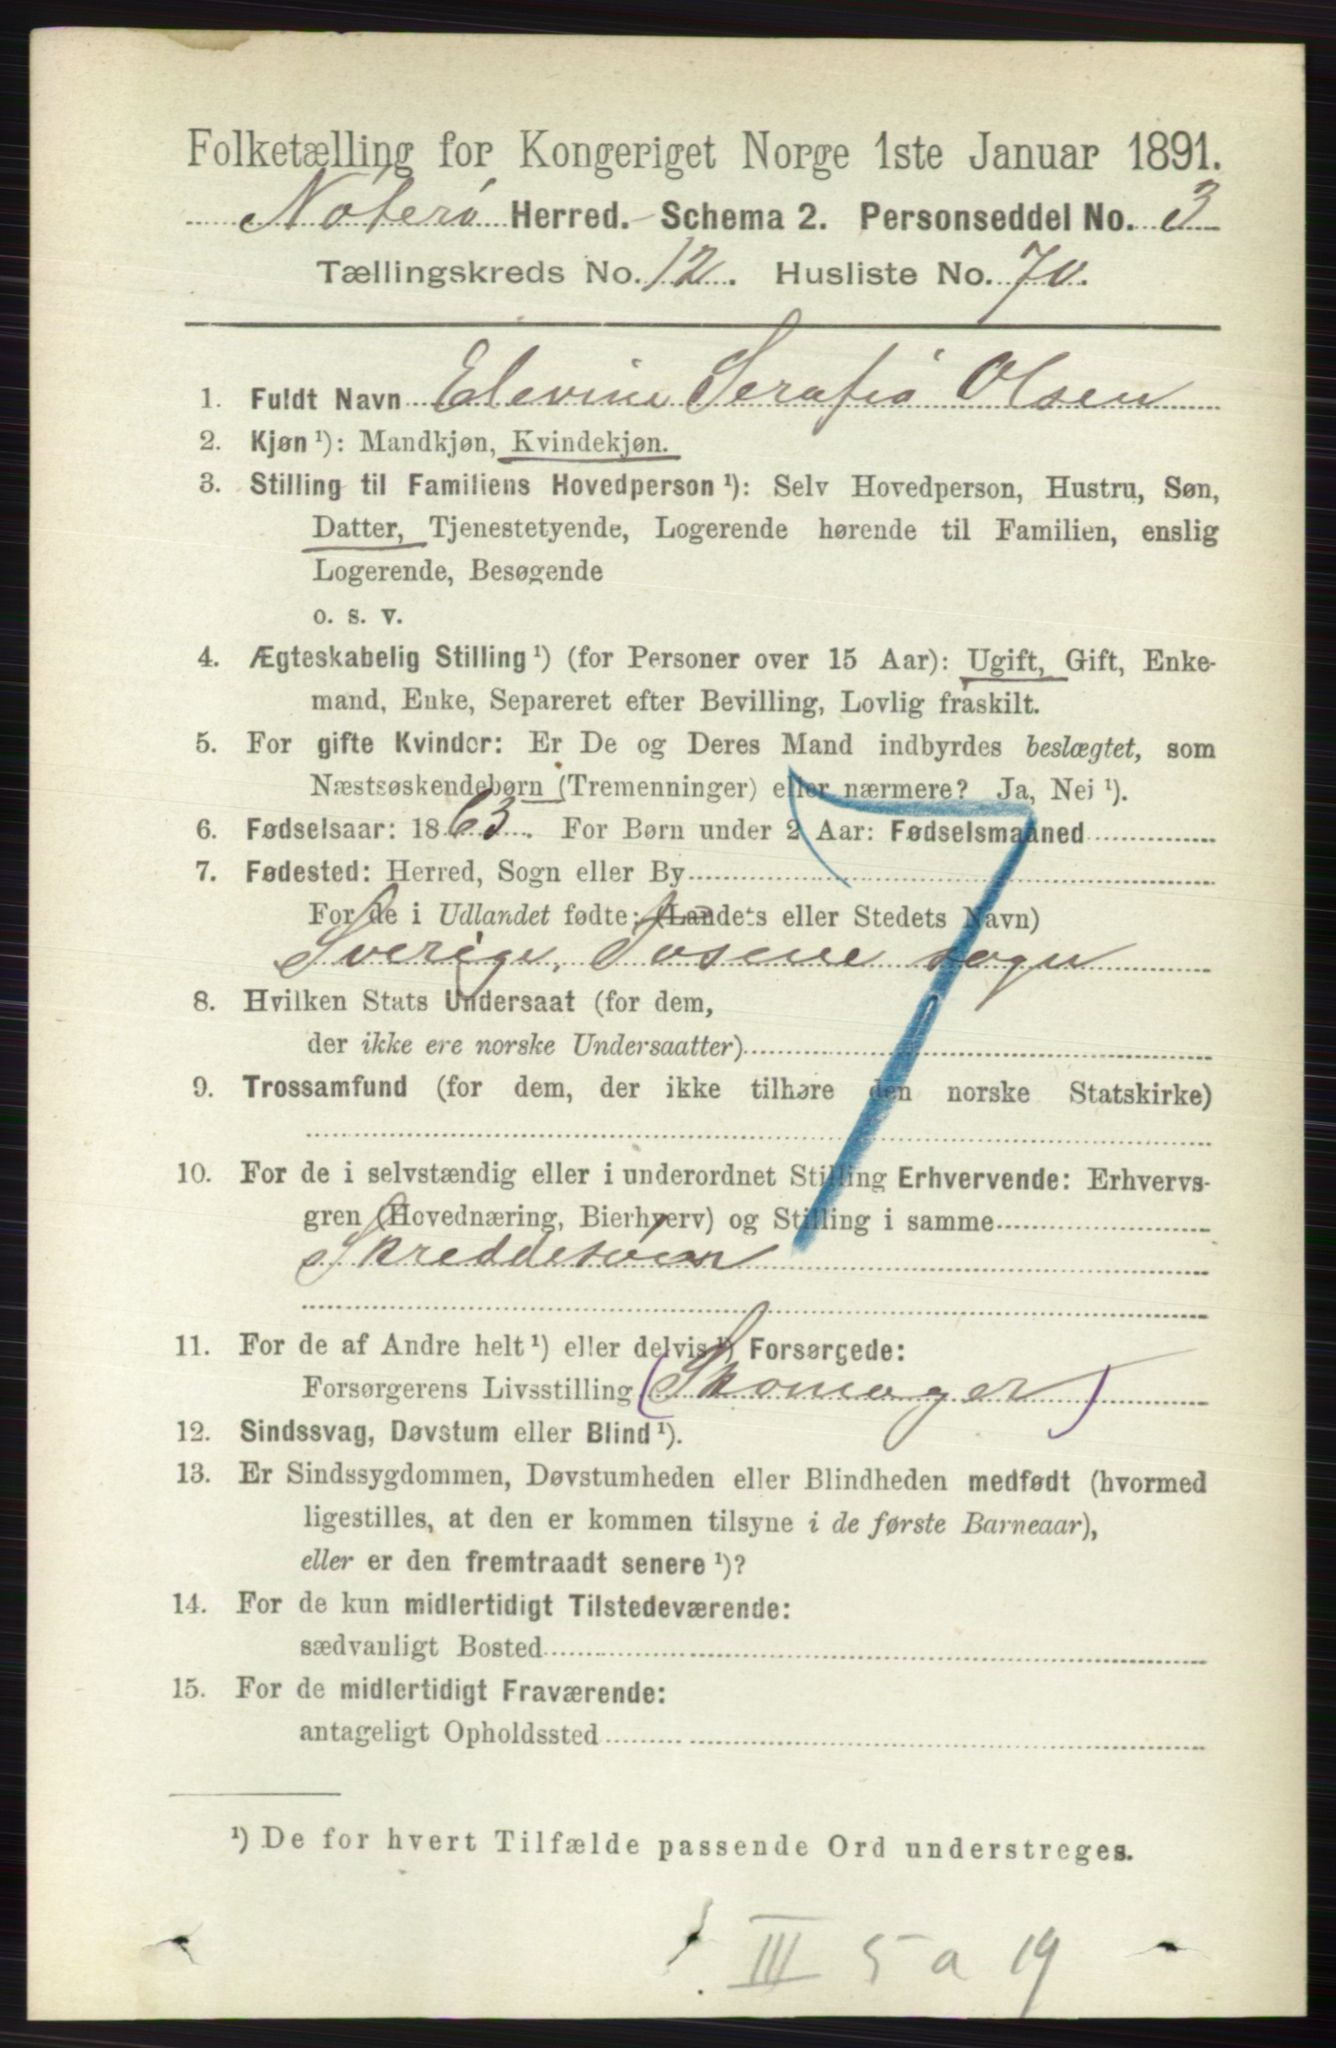 Folketælling for Kongeriget Norge 1ste Januar 1891.
Nøterø Herred. Schema 2. Personseddel No. 3
Tællingskreds No. 12. Husliste No. 70.
1. Fuldt Navn Elevine Serafiø Olsen
2. Kjøn ¹): Mandkjøn, Kvindekjøn.
3. Stilling til Familiens Hovedperson ¹): Selv Hovedperson, Hustru, Søn,
Datter, Tjenestetyende, Logerende hørende til Familien, enslig
Logerende, Besøgende
o. s. v.
4. Ægteskabelig Stilling ¹) (for Personer over 15 Aar): Ugift, Gift, Enke-
mand, Enke, Separeret efter Bevilling, Lovlig fraskilt.
5. For gifte Kvinder: Er De og Deres Mand indbyrdes beslægtet, som
Næstsøskendebørn (Tremenninger) eller nærmere? Ja, Nei ¹).
6. Fødselsaar: 1863. For Børn under 2 Aar: Fødselsmaaned
7. Fødested: Herred, Sogn eller By
For de i Udlandet fødte: (Landets eller Stedets Navn)
Sverige, sogn
8. Hvilken Stats Undersaat (for dem,
der ikke ere norske Undersaatter)
9. Trossamfund (for dem, der ikke tilhøre den norske Statskirke)
10. For de i selvstændig eller i underordnet Stilling Erhvervende: Erhvervs-
gren (Hovednæring, Bierhverv) og Stilling i samme
11. For de af Andre helt ¹) eller delvis ¹) Forsørgede:
Forsørgerens Livsstilling (Skomager)
12. Sindssvag, Døvstum eller Blind ¹).
13. Er Sindssygdommen, Døvstumheden eller Blindheden medfødt (hvormed
ligestilles, at den er kommen tilsyne i de første Barneaar),
eller er den fremtraadt senere ¹)?
14. For de kun midlertidigt Tilstedeværende:
sædvanligt Bosted
15. For de midlertidigt Fraværende:
antageligt Opholdssted
¹) De for hvert Tilfælde passende Ord understreges.
III 5 a 19